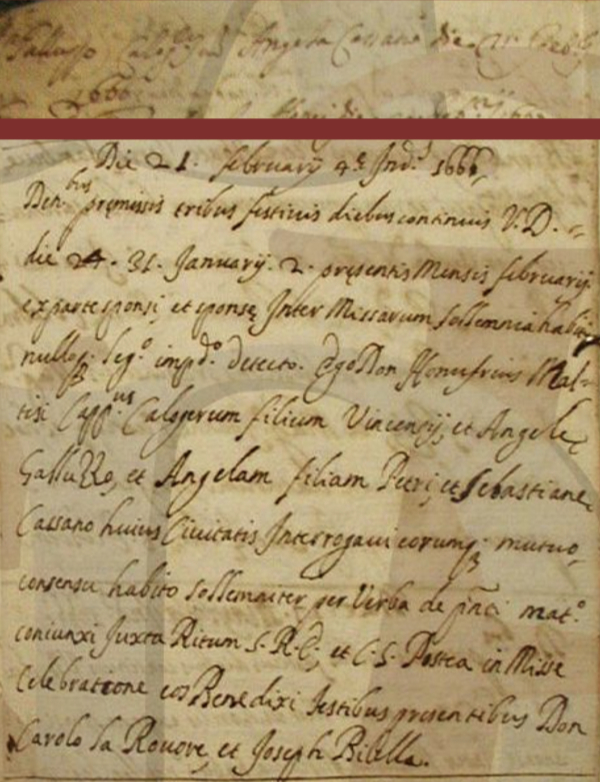 Galluzzo Calog.º cū Angela Cassano die 21 Feb.ⁱʲ
1666
Die 21. februarij 4.ᵉ Ind.ˢ 1666
Den.ᵇᵘˢ premissis tribus festiuis diebus continuis V.D. =
die 24. 31. Januarij. 2. presentis Mensis februarij
ex parte sponsi, et sponsę Inter Missarum sollemnia habitis
nulloq; leg.º imp.ᵈº detecto. Ego Don Honufrius Mal=
tisi Capp.ⁿᵘˢ Calogerum filium Vincentij, et Angele
Galluzzo, et Angelam filiam Petri, et Sebastiane
Cassano huius Ciuitatis Interrogaui eorumq; mutuo
consensu habito sollemniter per Verba de p̄nti mat.º
coniunxi Juxta Ritum S. R. E, et C. S. Postea in Misse
Celebratione eos Benedixi testibus presentibus Don
Carolo la Rouore, et Joseph Bilella.